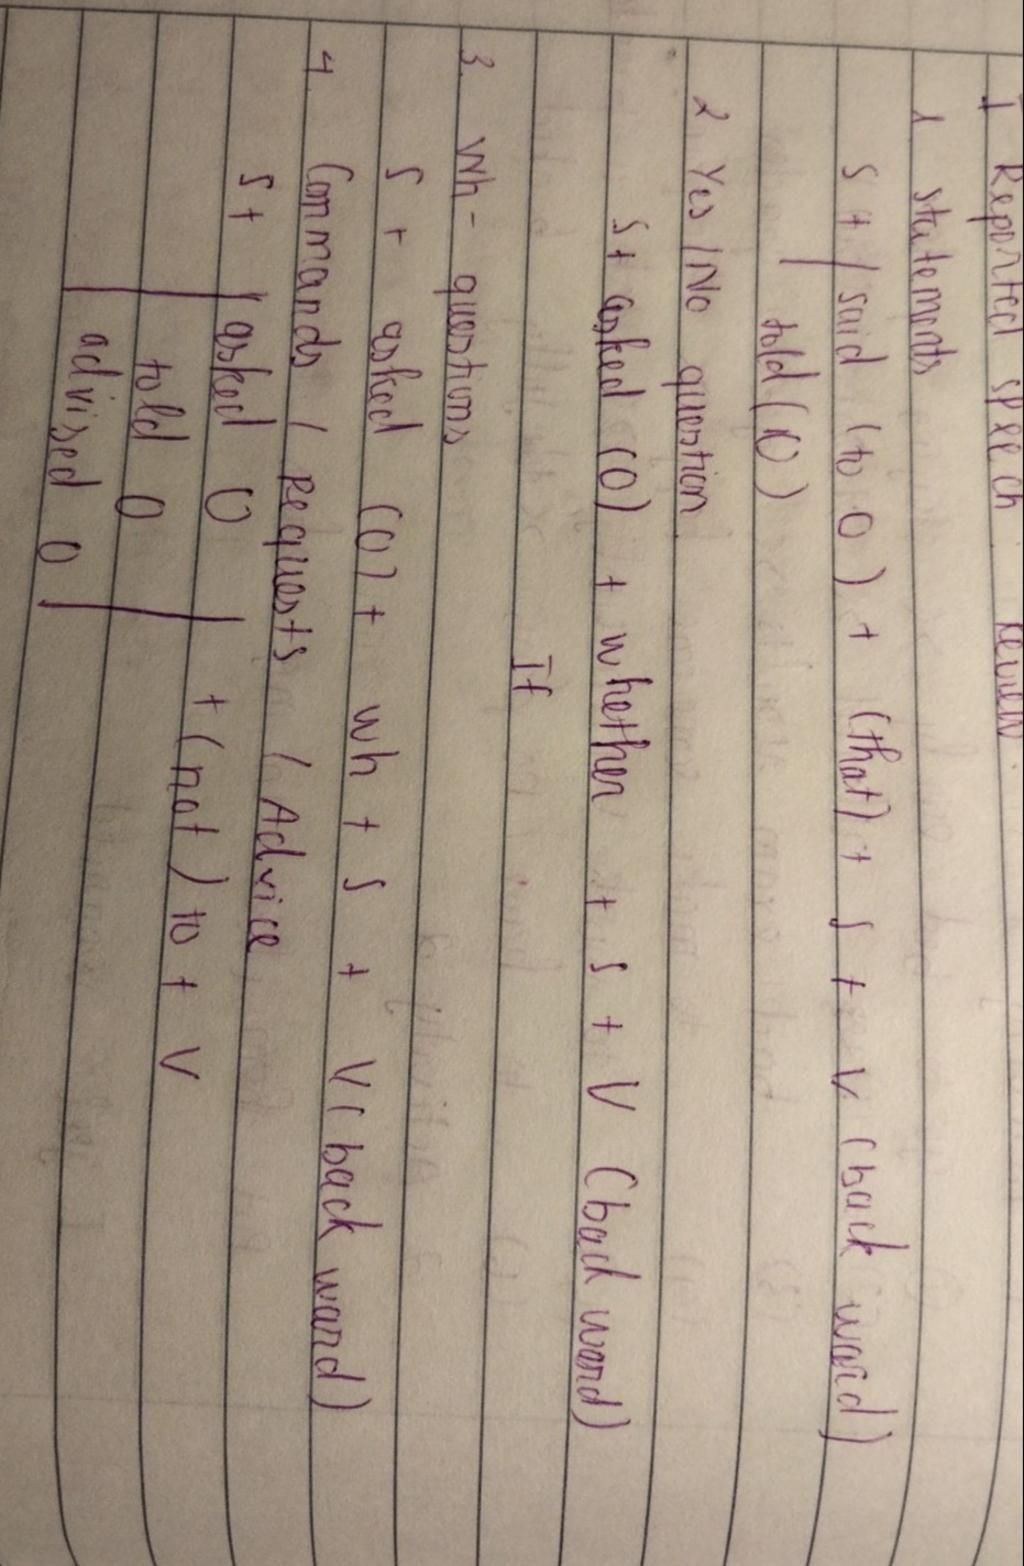 I Reported speech : Review
1 Statements
S + | said (to O) + (that) + S + V (back ward)
| told (O)
2. Yes / No question
S + asked (O) + whether + S + V (back ward)
If
3. Wh - questions
S + asked (O) + wh + S + V (back ward)
4. Commands / Requests / Advice
S + | asked O |
told O | + (not) to + V
advised O |